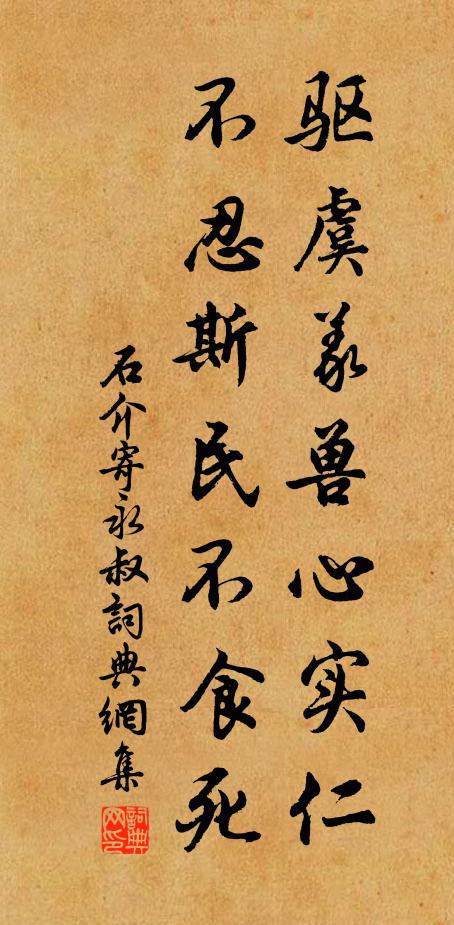 驱虞義兽心实仁
不忍斯民不食死
石介寄永叔詞典網集
詞典网印